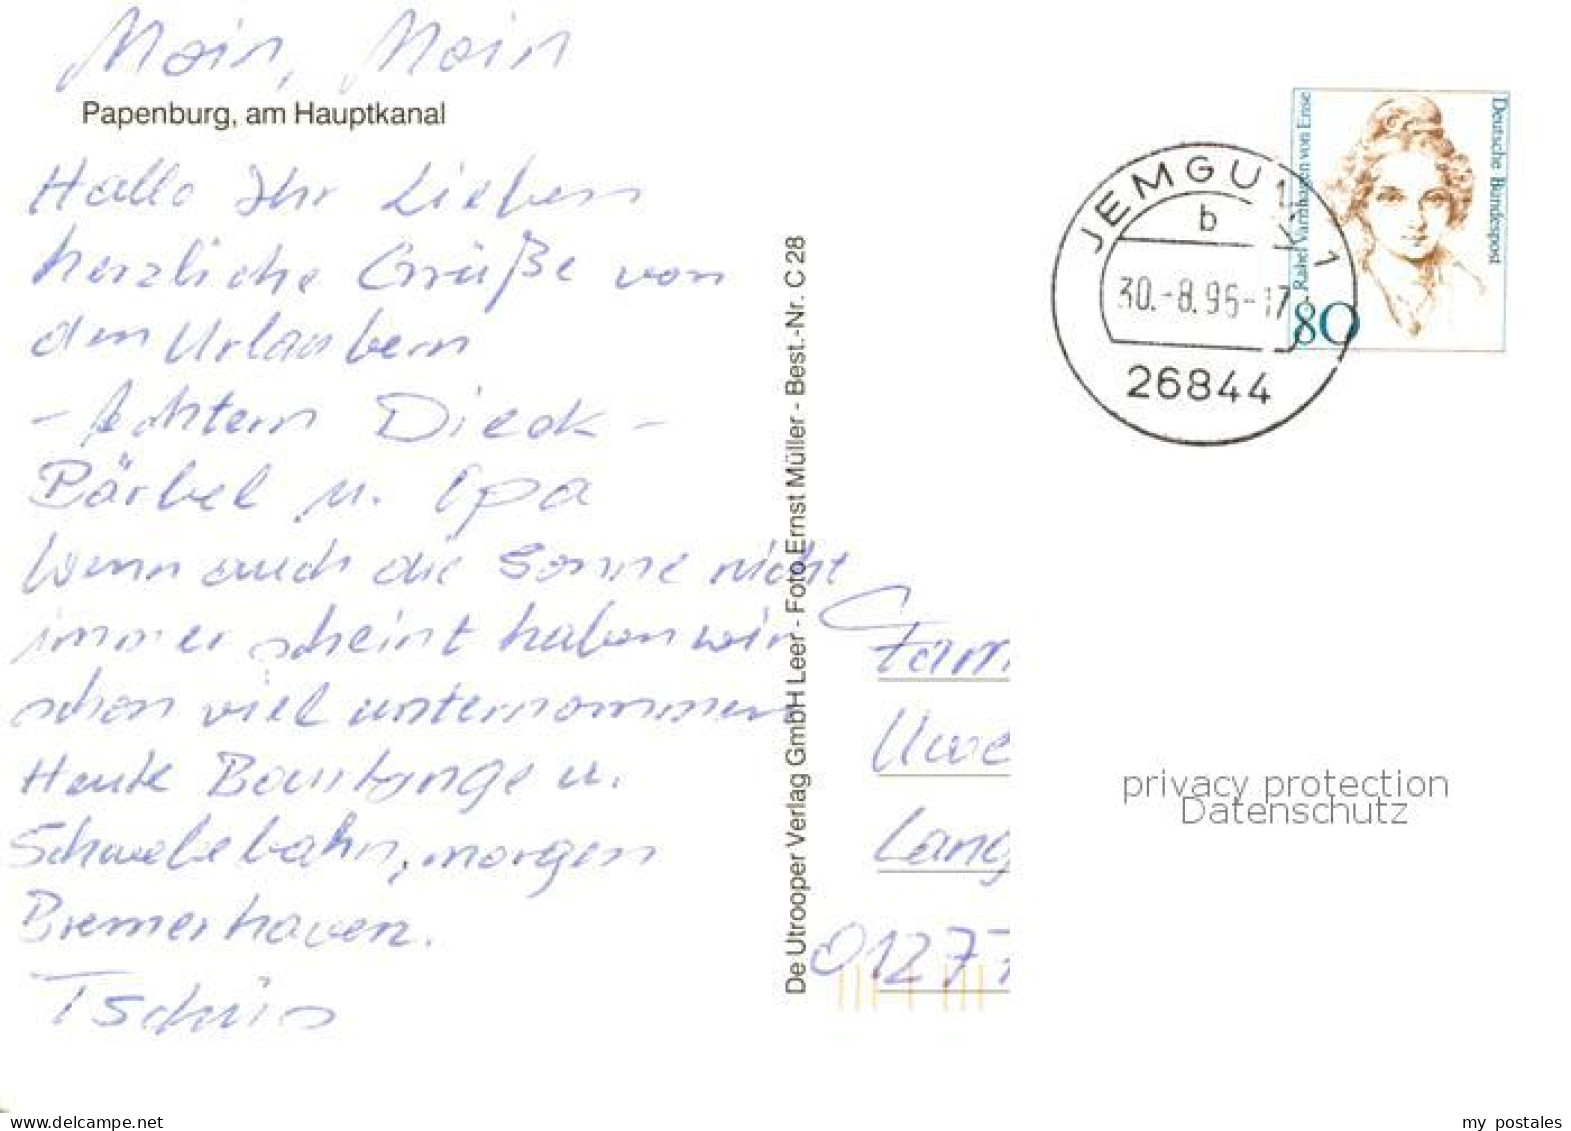 Moin, Moin
Papenburg, am Hauptkanal
Hallo Ihr Lieben
herzliche Grüße von
den Urlaubern
- Achtern Dieck -
Bärbel u. Opa
Wenn auch die Sonne nicht
immer scheint haben wir
schon viel unternommen
Heute Baustange u.
Schwebebahn, morgen
Bremerhaven.
Tschüs
De Utrooper Verlag GmbH Leer - Foto Ernst Müller - Best.-Nr. C 28
JEMGUM 1
b
30.-8.96-17
26844
Rahel Varnhagen von Ense
Deutsche Bundespost
80
Fam
Uwe
Lang
01277
privacy protection
Datenschutz
oldthing
my_postales